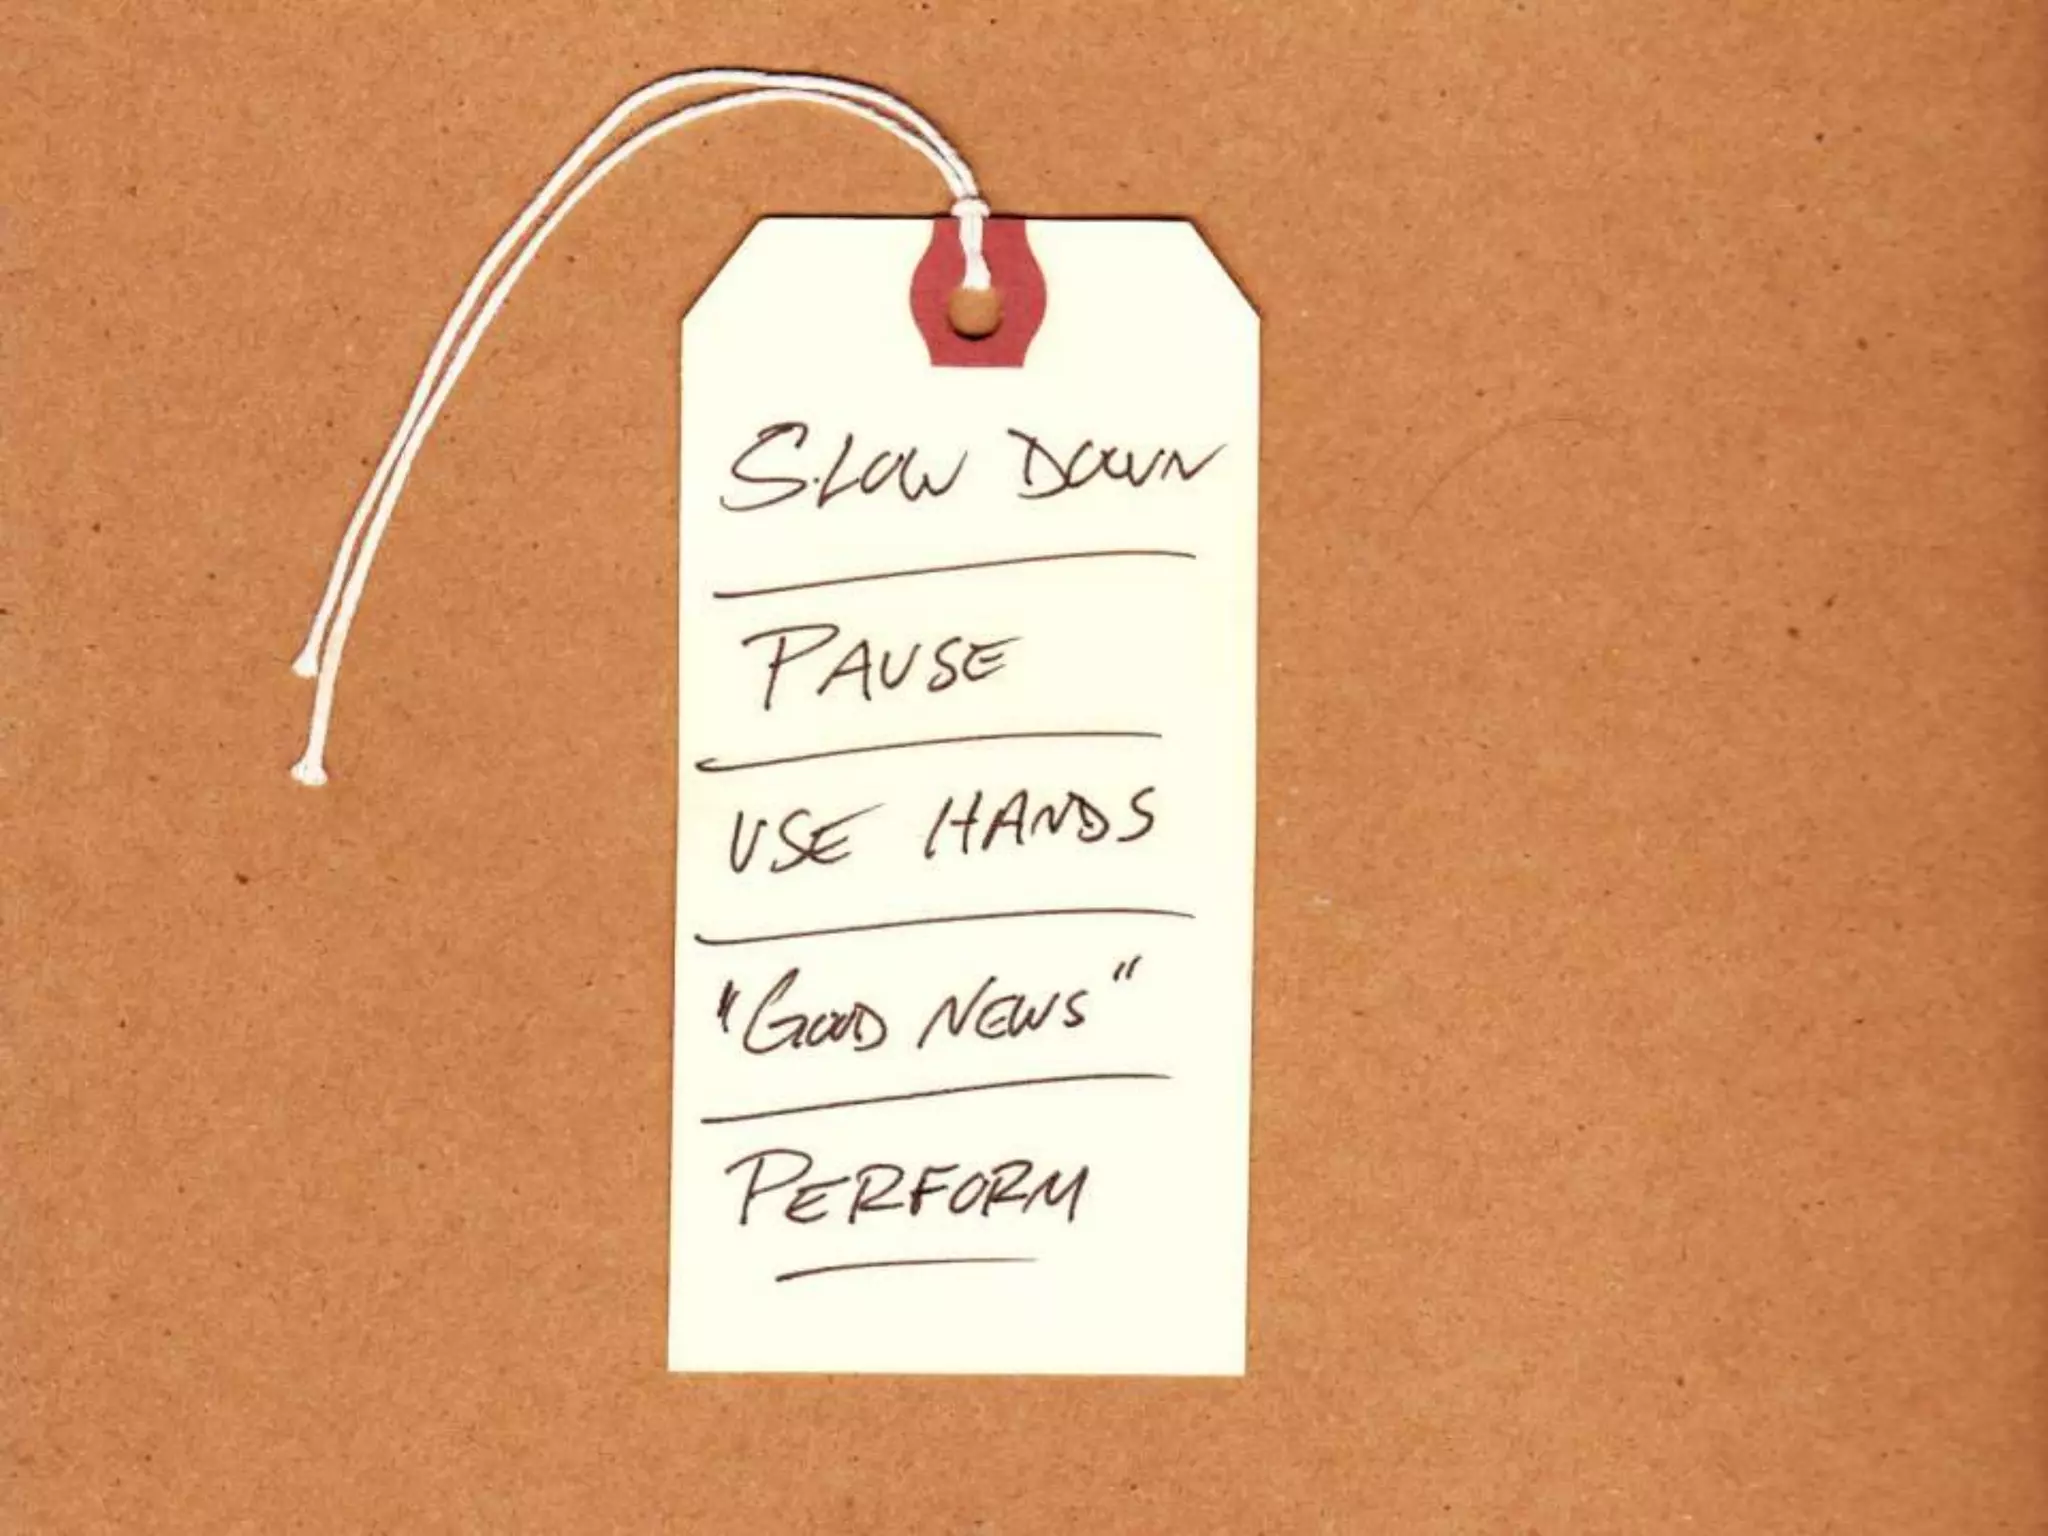 SLOW DOWN
PAUSE
USE HANDS
"GOOD NEWS"
PERFORM